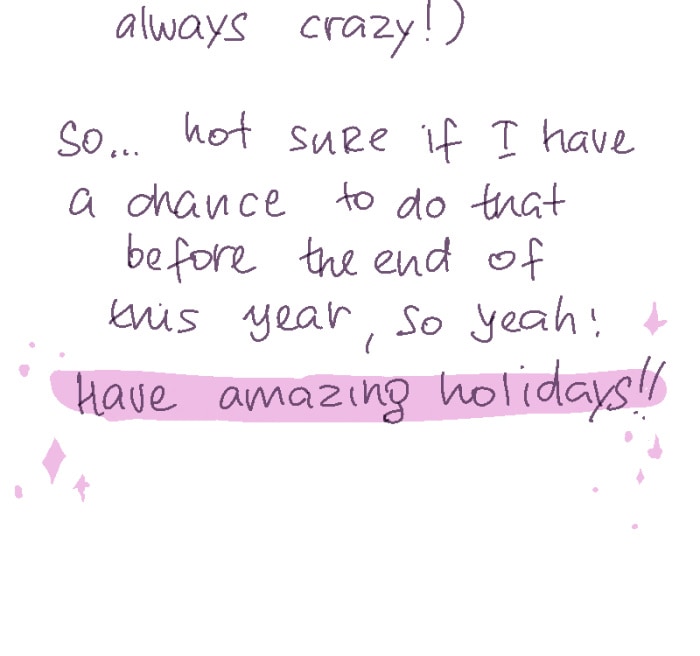 always crazy!)
So... not sure if I have
a chance to do that
before the end of
this year, so yeah!
Have amazing holidays!!